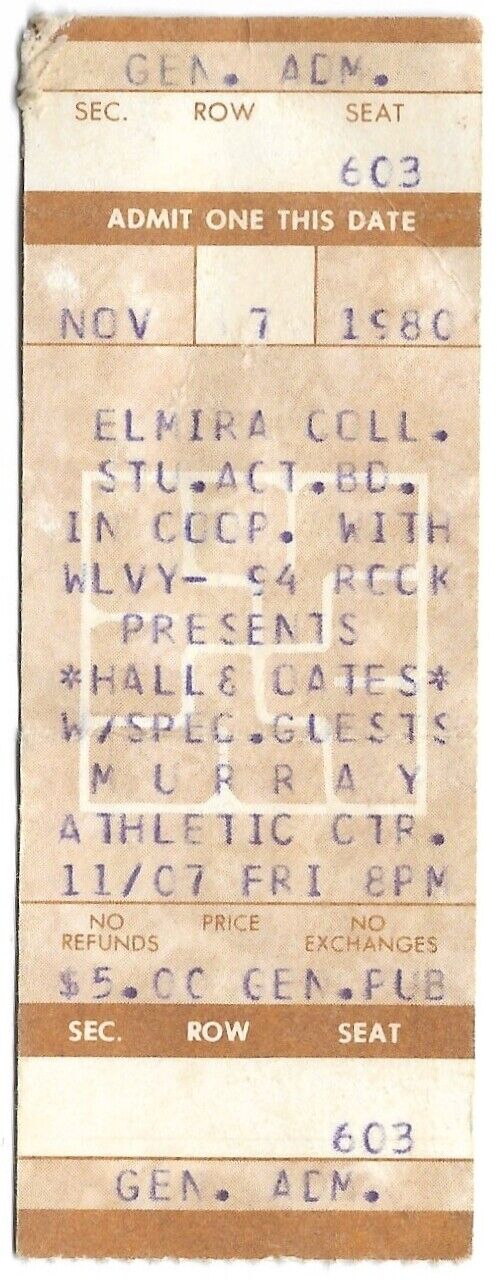 GEN. ADM.
SEC. ROW SEAT
603
ADMIT ONE THIS DATE
NOV 7 1980
ELMIRA COLL.
STU.ACT.BD.
IN COOP. WITH
WLVY- 94 ROCK
PRESENTS
*HALL& OATES*
W/SPEC.GUESTS
M U R R A Y
ATHLETIC CTR.
11/07 FRI 8PM
NO REFUNDS PRICE NO EXCHANGES
$5.00 GEN.PUB
SEC. ROW SEAT
603
GEN. ADM.